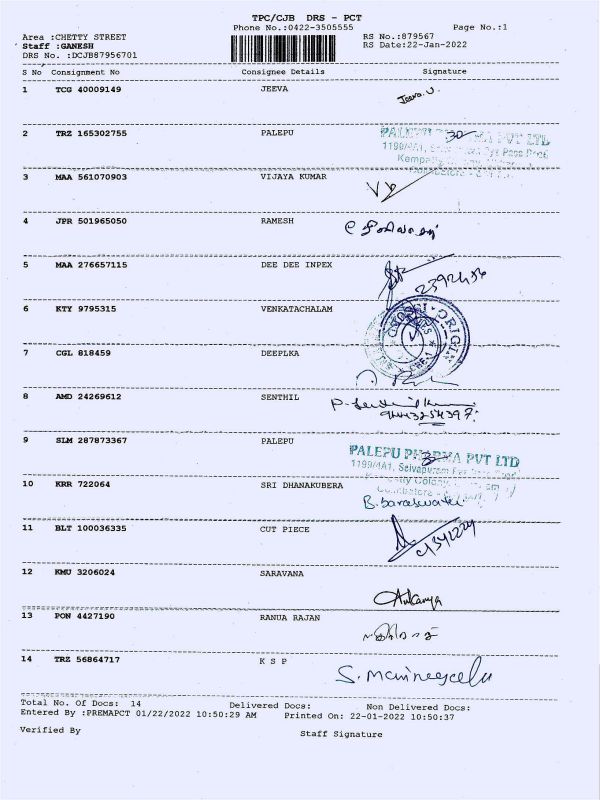 TPC/CJB DRS - PCT
Phone No.:0422-3505555 Page No.:1
Area :CHETTY STREET RS No.:879567
Staff :GANESH RS Date:22-Jan-2022
DRS No. :DCJB87956701
S No Consignment No Consignee Details Signature
1 TCG 40009149 JEEVA Jeeva.U.
2 TRZ 165302755 PALEPU
PALEPU PVT LTD
3 MAA 561070903 VIJAYA KUMAR
4 JPR 501965050 RAMESH
5 MAA 276657115 DEE DEE INPEX
6 KTY 9795315 VENKATACHALAM
7 CGL 818459 DEEPLKA
8 AMD 24269612 SENTHIL
9 SLM 287873367 PALEPU
PALEPU PHARMA PVT LTD
1199/4A1, Selvapuram
10 KRR 722064 SRI DHANAKUBERA
B. Saraswathi
11 BLT 100036335 CUT PIECE
12 KMU 3206024 SARAVANA
13 PON 4427190 RANUA RAJAN
14 TRZ 56864717 K S P
Total No. Of Docs: 14 Delivered Docs: Non Delivered Docs:
Entered By :PREMAPCT 01/22/2022 10:50:29 AM Printed On: 22-01-2022 10:50:37
Verified By Staff Signature